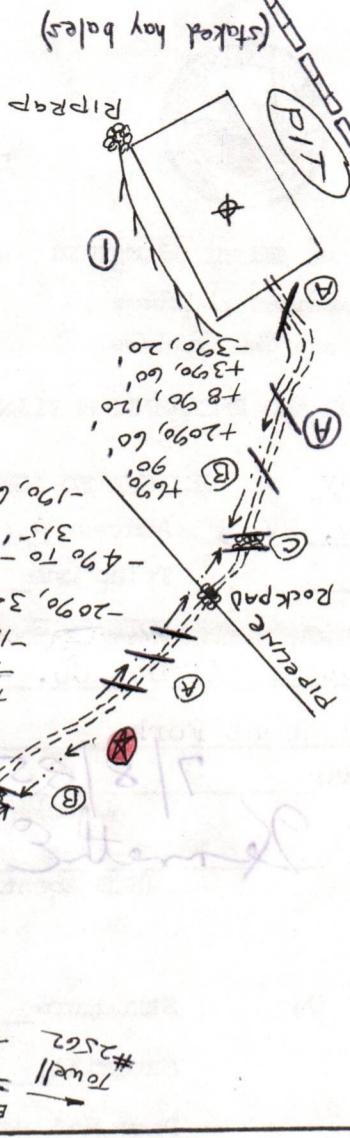 To well
#2562
B
A
PIPELINE
ROCKPAD
-20%, 3
-4% TO -
315'
-1%, 6
C
B
+6%, 90'
+20%, 60'
+8%, 120'
+3%, 60'
-3%, 20'
A
A
1
PIT
RIPRAP
(staked hay bales)